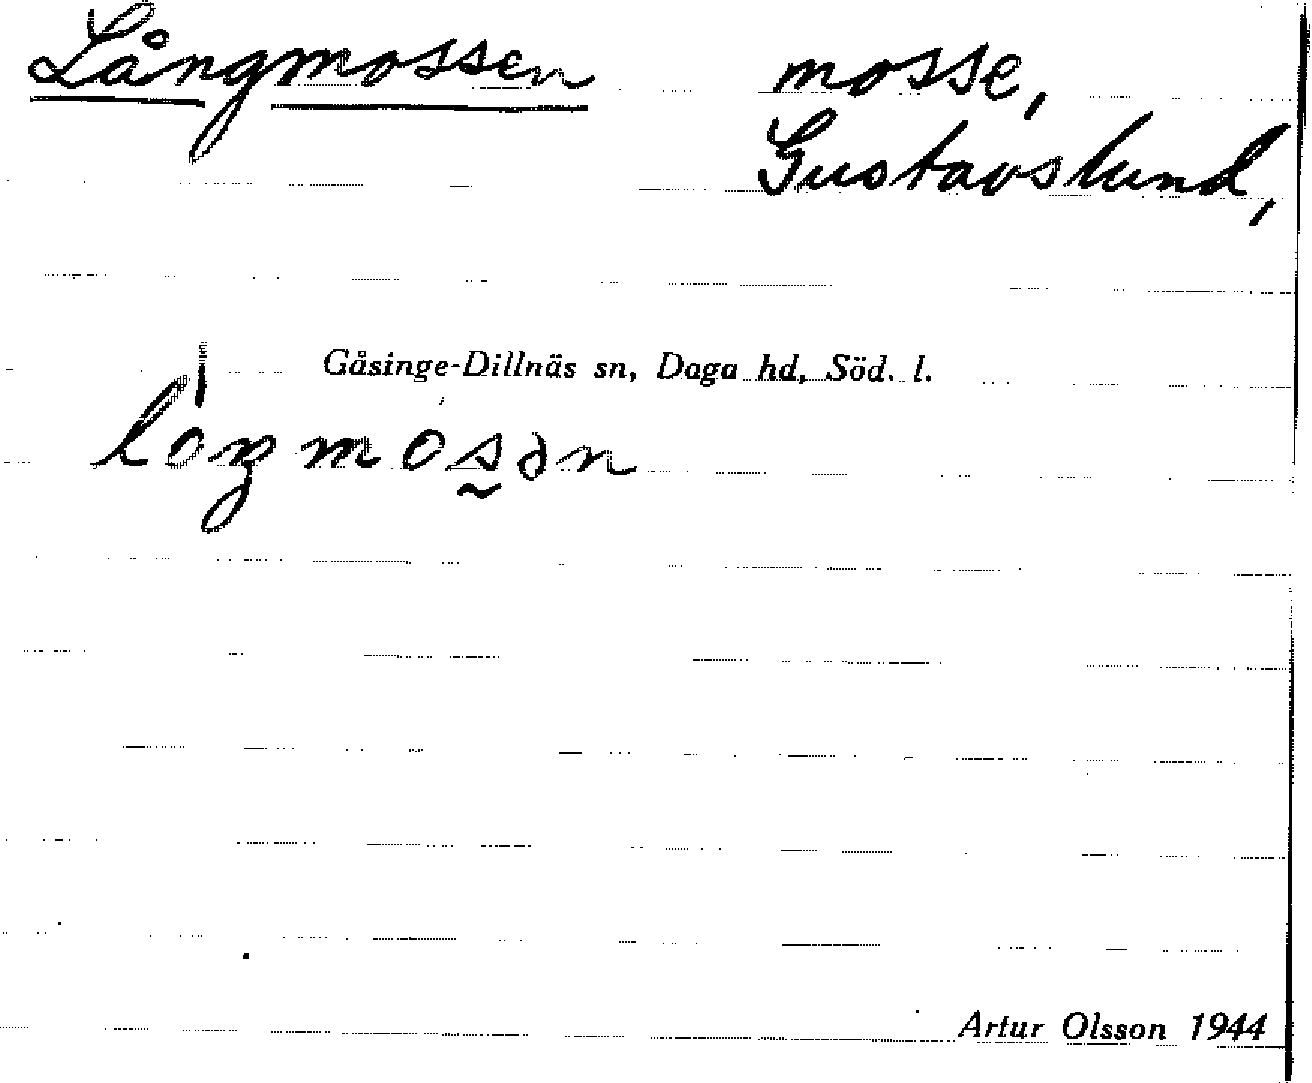 Långmossen mosse,
Gustavslund,
Gåsinge-Dillnäs sn, Daga hd, Söd. l.
Artur Olsson 1944